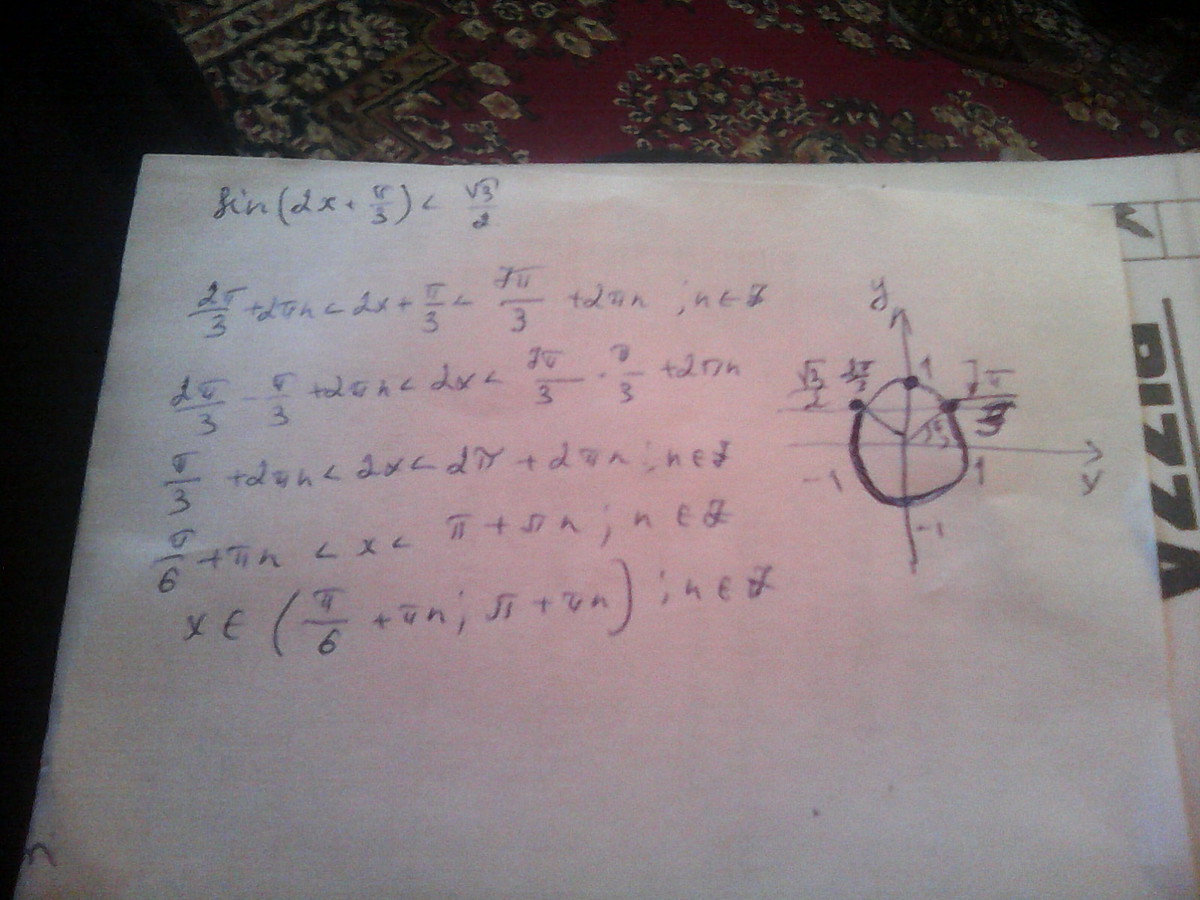 sin(2x + π/3) < √3/2
2π/3 + 2πn < 2x + π/3 < 7π/3 + 2πn ; n ∈ Z
2π/3 - π/3 + 2πn < 2x < 7π/3 - π/3 + 2πn
π/3 + 2πn < 2x < 2π + 2πn ; n ∈ Z
π/6 + πn < x < π + πn ; n ∈ Z
x ∈ (π/6 + πn ; π + πn) ; n ∈ Z
y
√3/2 2π/3 1 7π/3
π/3
-1 1 x
-1
PIZZA